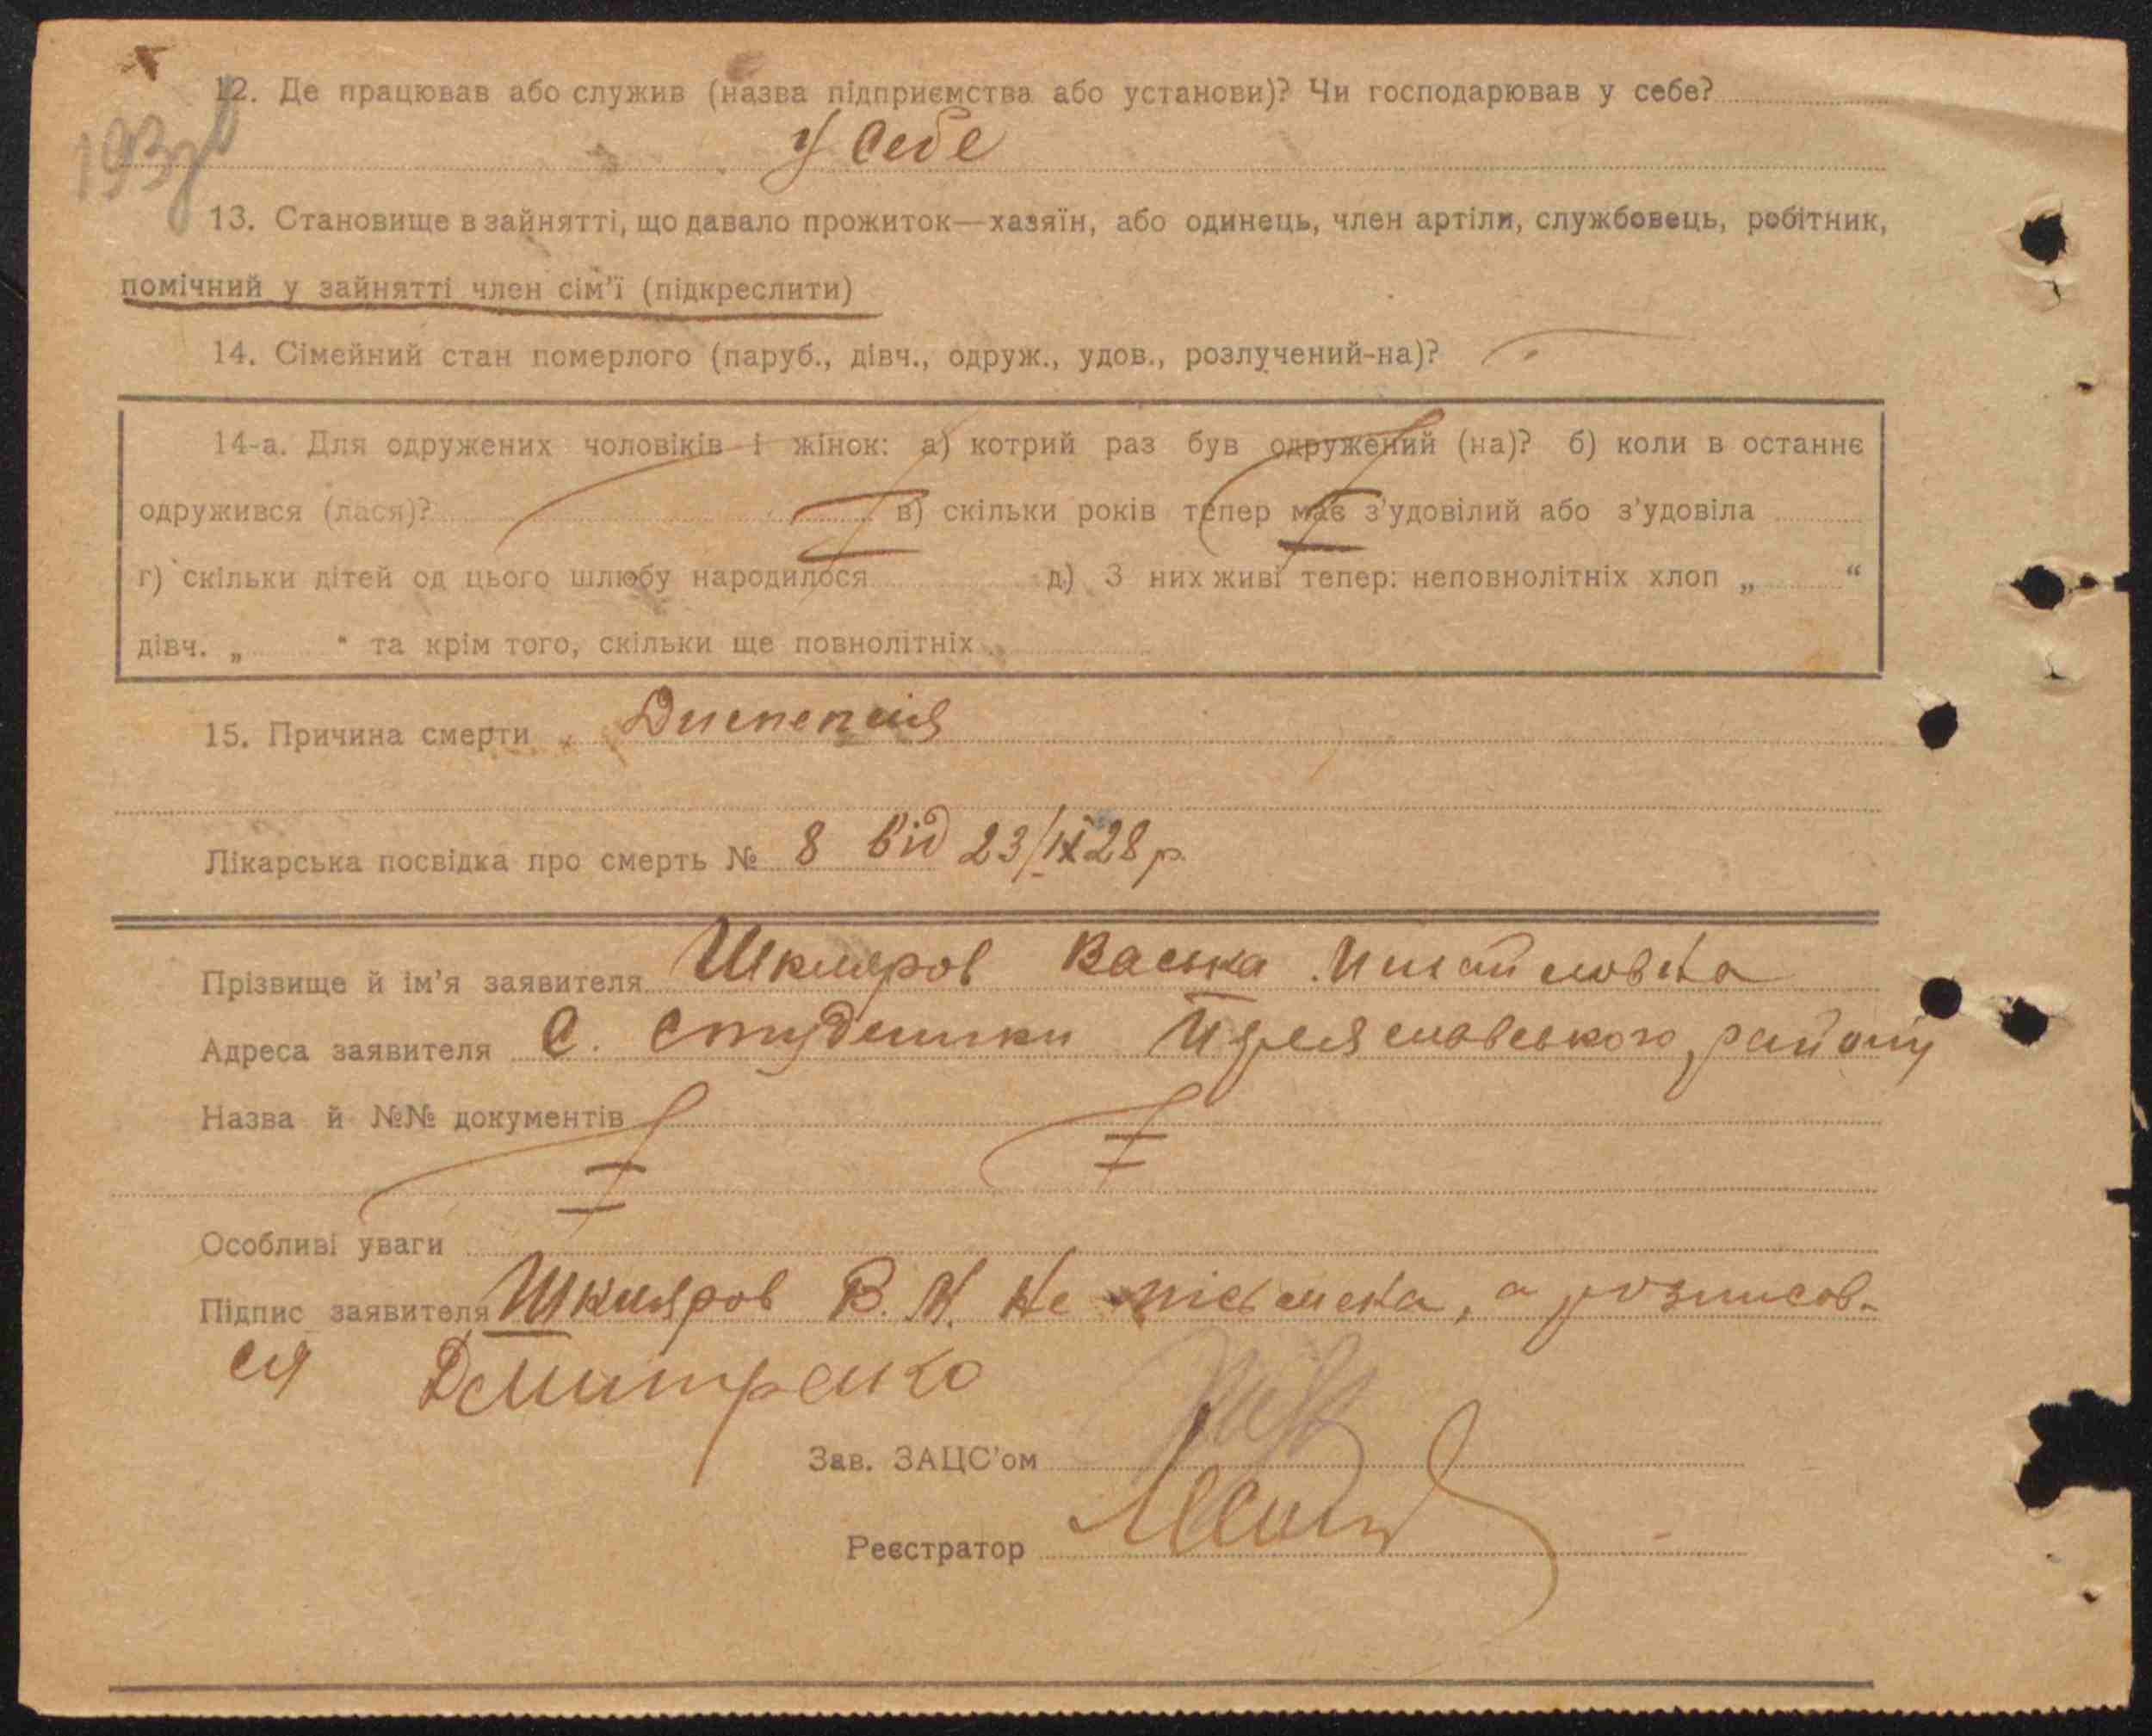 12. Де працював або служив (назва підприємства або установи)? Чи господарював у себе?
у себе
13. Становище в зайнятті, що давало прожиток—хазяїн, або одинець, член артіли, службовець, робітник,
помічний у зайнятті член сім'ї (підкреслити)
14. Сімейний стан померлого (паруб., дівч., одруж., удов., розлучений-на)?
14-а. Для одружених чоловіків і жінок: а) котрий раз був одружений (на)? б) коли в останнє
одружився (лася)? в) скільки років тепер має з'удовілий або з'удовіла
г) скільки дітей од цього шлюбу народилося д) З них живі тепер: неповнолітніх хлоп „ “
дівч. „ “ та крім того, скільки ще повнолітніх
15. Причина смерти Диспепсия
Лікарська посвідка про смерть № 8 від 23/IX 28 р.
Прізвище й ім'я заявителя Шкляров Васька
Адреса заявителя С. Студеники району
Назва й №№ документів
Особливі уваги
Підпис заявителя Шкляров В. Не письмена, а розписов-
ся Дмитренко
Зав. ЗАЦС'ом
Реєстратор